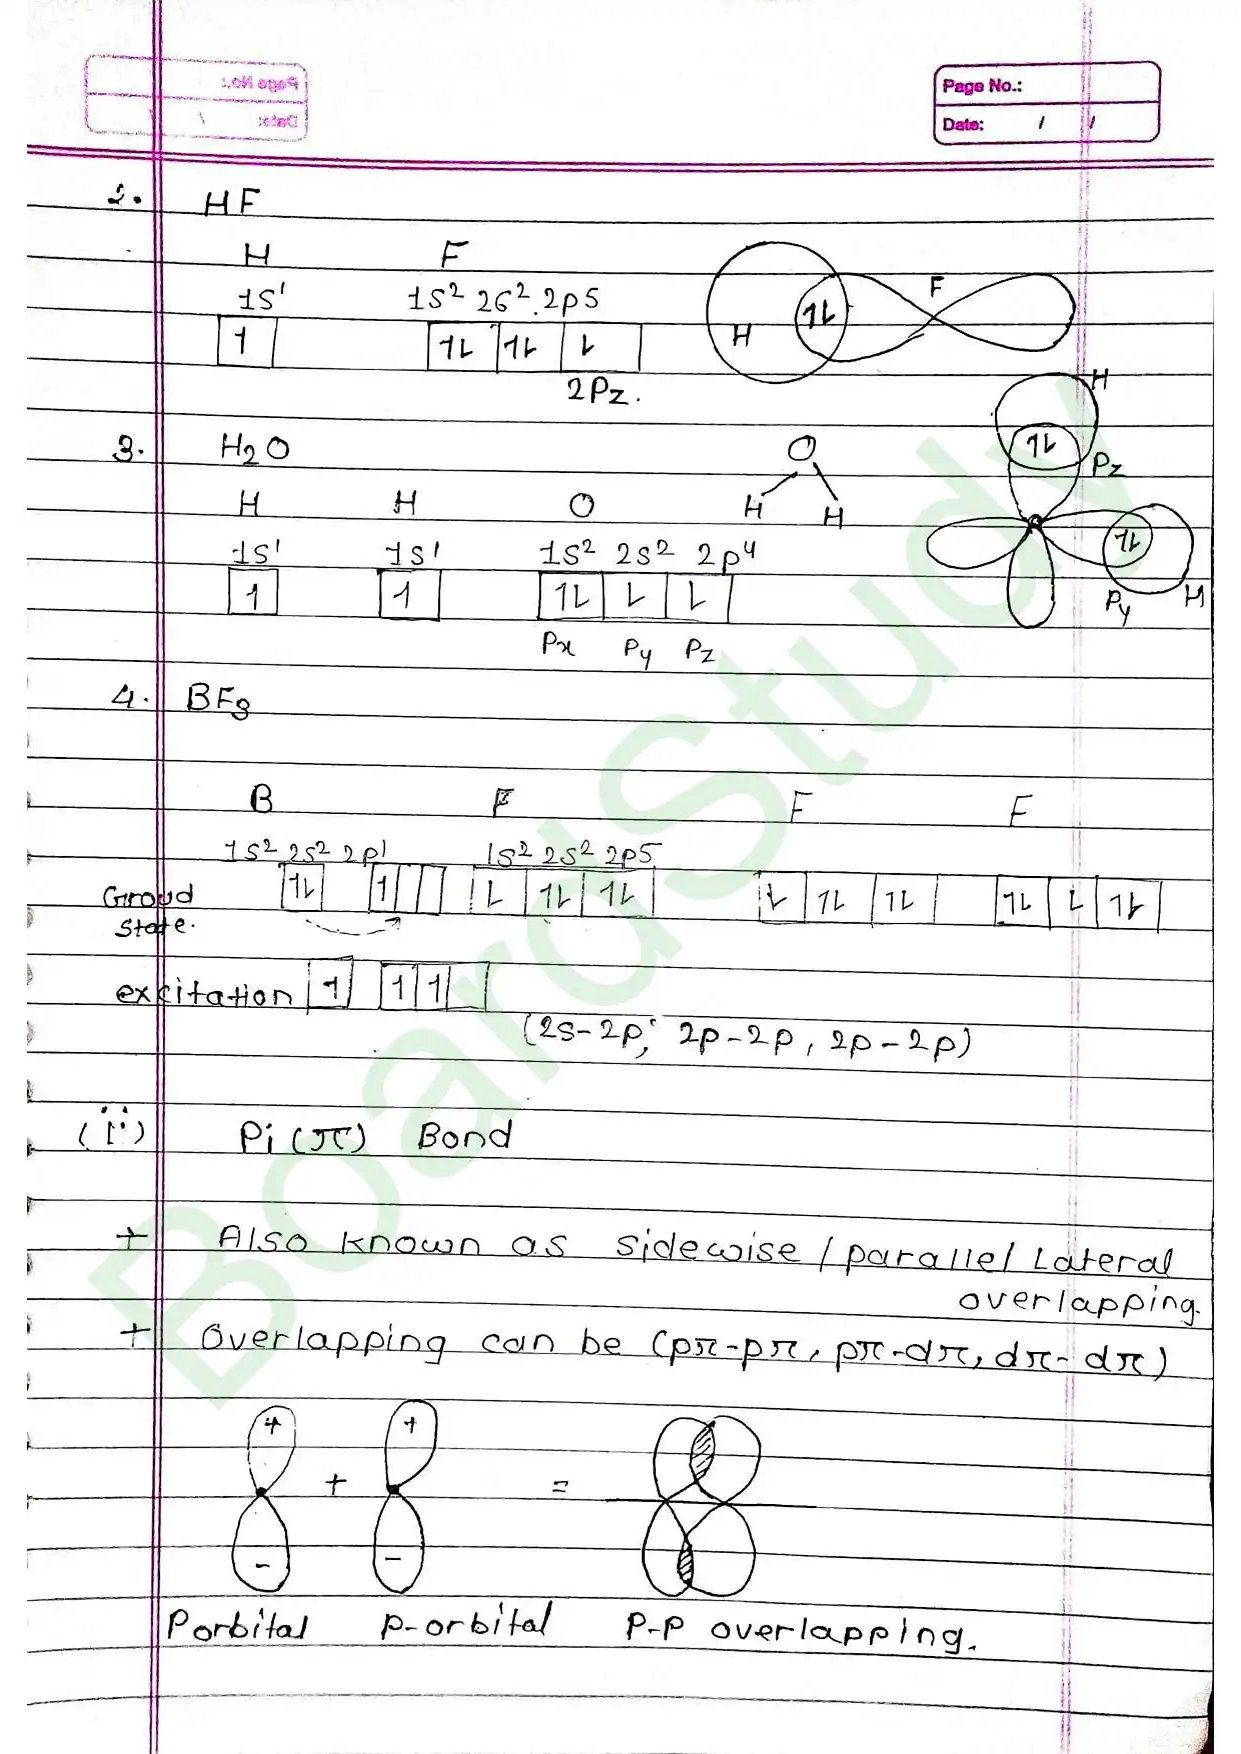 Page No.:
Date: / /
2. HF
H F
1s¹ 1s² 2s². 2p5
1 1L 1L L
2Pz.
H 1L F
3. H₂O
H H O
1s¹ 1s¹ 1s² 2s² 2p⁴
1 1 1L L L
Px Py Pz
O
H H
H
1L
Pz
1L
Py H
4. BF₃
B F F F
1s² 2s² 2p¹ 1s² 2s² 2p5
Groud state. 1L 1 L 1L 1L L 1L 1L 1L L 1L
excitation 1 1 1
(2s-2p, 2p-2p, 2p-2p)
(ii) Pi (π) Bond
+ Also known as sidewise / parallel Lateral
overlapping.
+ Overlapping can be (pπ-pπ, pπ-dπ, dπ-dπ)
+ +
+ =
- -
P orbital p-orbital P-P overlapping.
BoardStudy